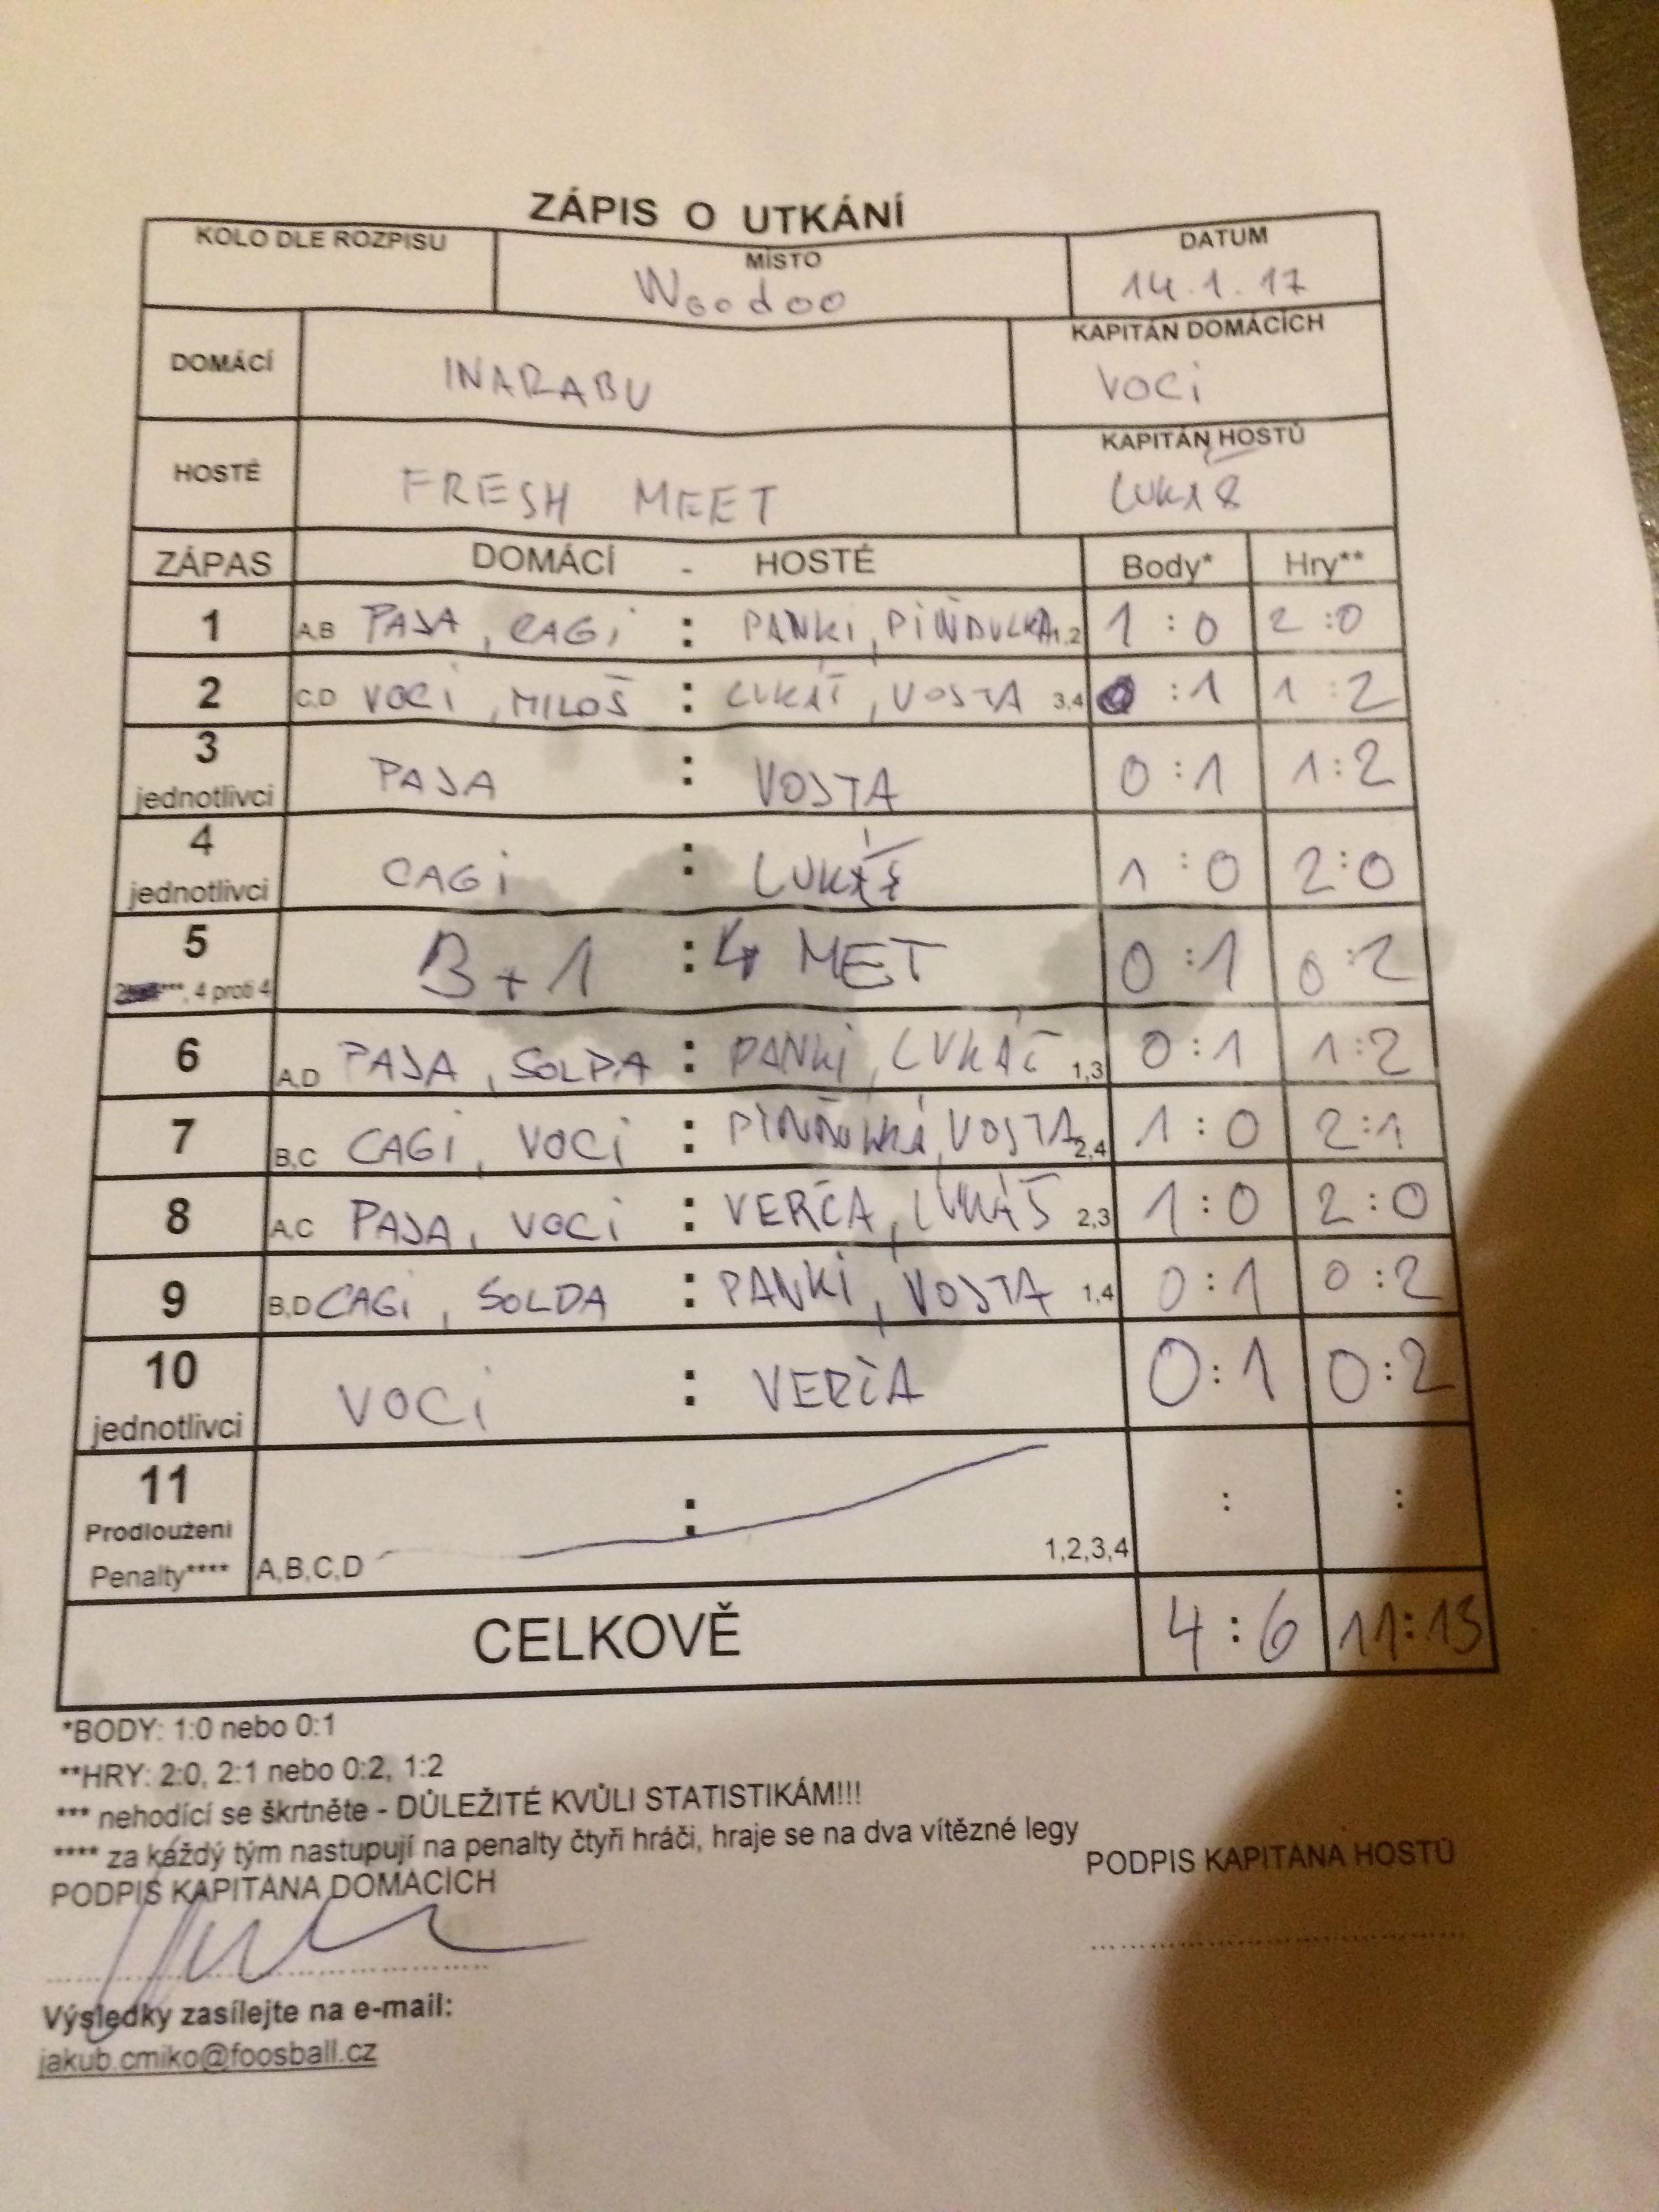 ZÁPIS O UTKÁNÍ
KOLO DLE ROZPISU MÍSTO DATUM
Woodoo 14.1.17
DOMÁCÍ INARABU KAPITÁN DOMÁCÍCH
VOCI
HOSTÉ FRESH MEET KAPITÁN HOSTŮ
LUKÁŠ
ZÁPAS DOMÁCÍ - HOSTÉ Body* Hry**
1 A,B PAJA, CAGI : PANKI, PINĎULKA 1,2 1:0 2:0
2 C,D VOCI, MILOŠ : LUKÁŠ, VOJTA 3,4 0:1 1:2
3 jednotlivci PAJA : VOJTA 0:1 1:2
4 jednotlivci CAGI : LUKÁŠ 1:0 2:0
5 ***, 4 proti 4 3+1 : 4 MET 0:1 0:2
6 A,D PAJA, SOLDA : PANKI, LUKÁŠ 1,3 0:1 1:2
7 B,C CAGI, VOCI : VOJTA 2,4 1:0 2:1
8 A,C PAJA, VOCI : VERČA, LUKÁŠ 2,3 1:0 2:0
9 B,D CAGI, SOLDA : PANKI, VOJTA 1,4 0:1 0:2
10 jednotlivci VOCI : VERČA 0:1 0:2
11 Prodloužení
Penalty**** A,B,C,D : 1,2,3,4 : :
CELKOVĚ 4:6 11:13
*BODY: 1:0 nebo 0:1
**HRY: 2:0, 2:1 nebo 0:2, 1:2
*** nehodící se škrtněte - DŮLEŽITÉ KVŮLI STATISTIKÁM!!!
**** za každý tým nastupují na penalty čtyři hráči, hraje se na dva vítězné legy
PODPIS KAPITÁNA DOMÁCÍCH PODPIS KAPITÁNA HOSTŮ
Výsledky zasílejte na e-mail:
jakub.cmiko@foosball.cz